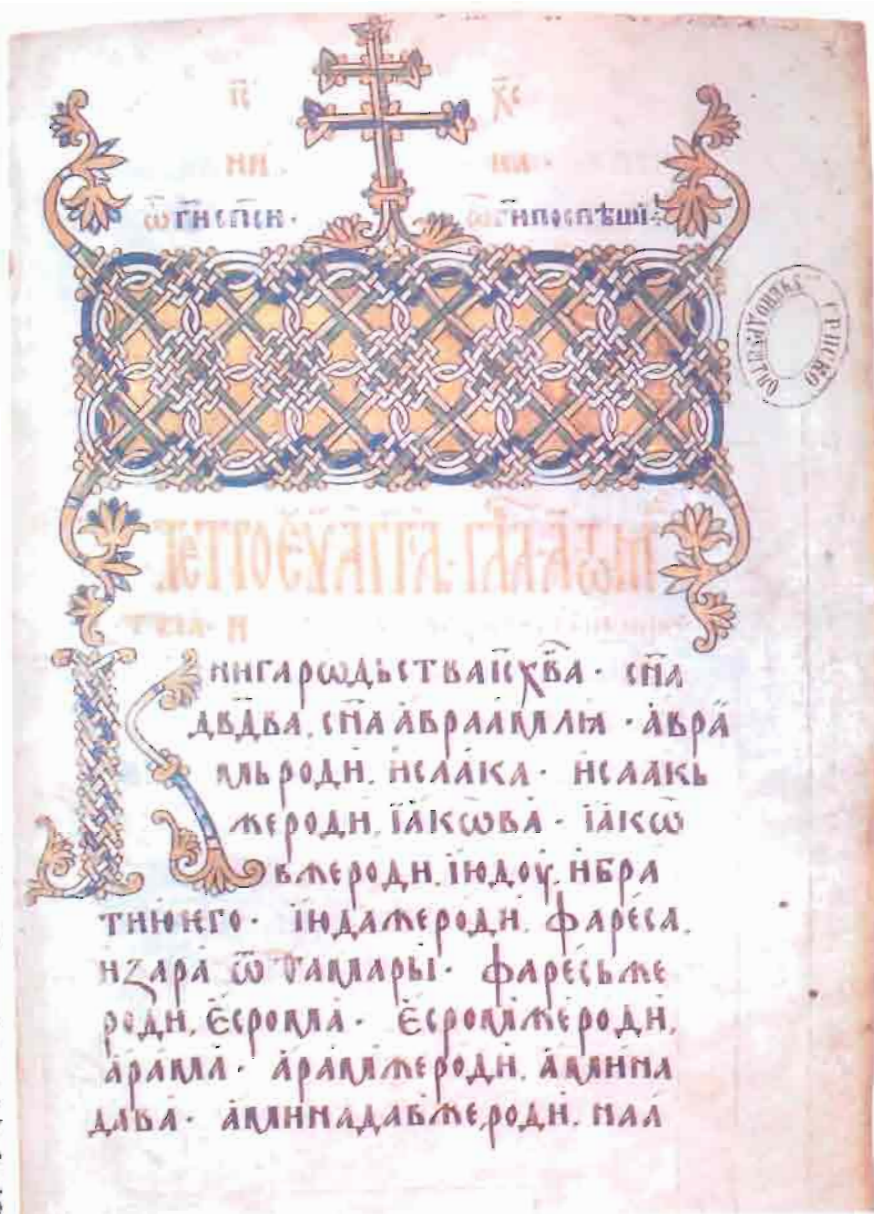 і҃с х҃с
ни ка·
ѿ г҃и сп҃си· ѿ г҃и поспѣши
Тетроеѵаггл· гла· а҃ ѡ мⷮ
теіа· и
Книга рѡдьства іс҃ хв҃а · сн҃а
дв҃два, сн҃а авраамлꙗ · авра
мь роди, исаака · исаакь
же роди, іакѡва · іакѡ
вже роди, іюдоу, и бра
тию ѥго · іюдаже роди, фареса,
и зара ѿ тамары · фаресьже
роди, есрома · есромже роди,
арама · арамже роди, амина
дава · аминадавже, роди, наа